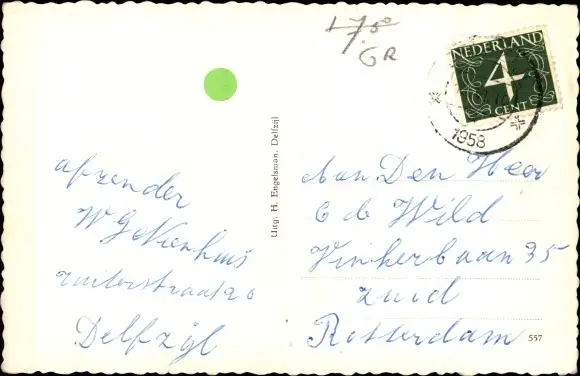 17.50
GR
NEDERLAND
4
CENT
1958
afzender
W G Nienhuis
Zuiterstraat 20
Delfzijl
Uitg. H. Engelsman, Delfzijl
Aan Den Heer
C de Wild
Vinkerbaan 35
Zuid
Rotterdam
557